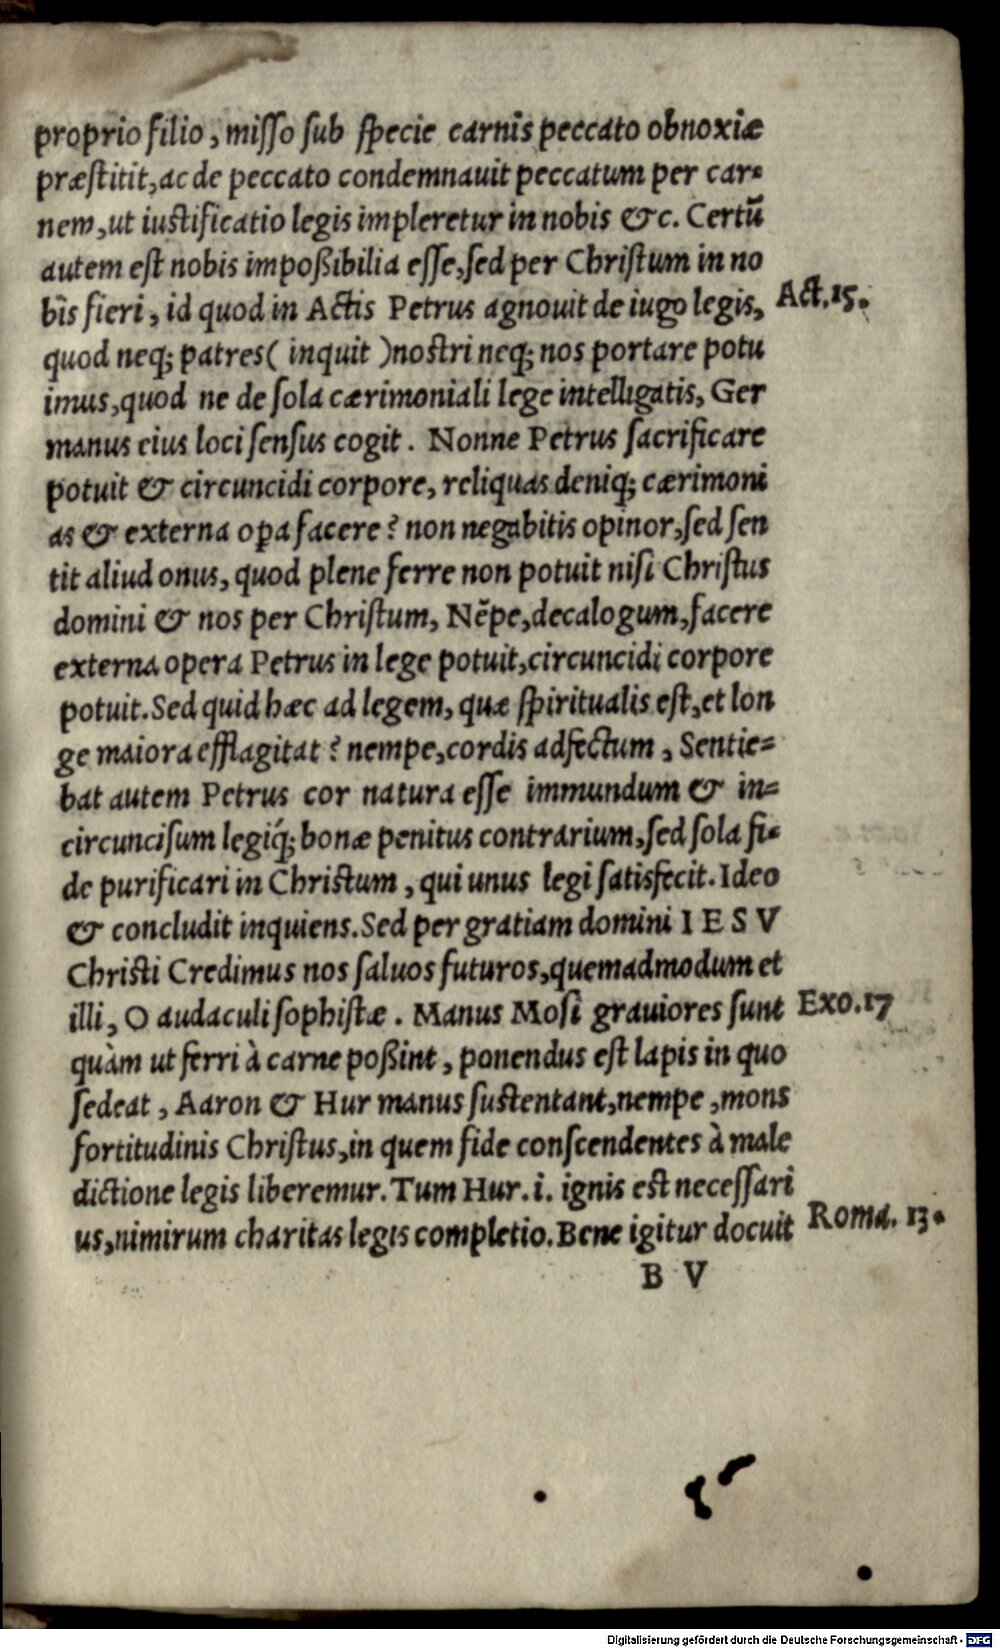 proprio filio, misso sub specie carnis peccato obnoxiæ
præstitit, ac de peccato condemnauit peccatum per car-
nem, ut iustificatio legis impleretur in nobis &c. Certũ
autem est nobis impoßibilia esse, sed per Christum in no
bis fieri, id quod in Actis Petrus agnouit de iugo legis,
Act. 15.
quod neq; patres ( inquit ) nostri neq; nos portare potu
imus, quod ne de sola cærimoniali lege intelligatis, Ger
manus eius loci sensus cogit. Nonne Petrus sacrificare
potuit & circuncidi corpore, reliquas deniq; cærimoni
as & externa oꝑa facere? non negabitis opinor, sed sen
tit aliud onus, quod plene ferre non potuit nisi Christus
domini & nos per Christum, Nẽpe, decalogum, facere
externa opera Petrus in lege potuit, circuncidi corpore
potuit. Sed quid hæc ad legem, quæ spiritualis est, et lon
ge maiora efflagitat? nempe, cordis adfectum, Sentie-
bat autem Petrus cor natura esse immundum & in-
circuncisum legiq́; bonæ penitus contrarium, sed sola fi-
de purificari in Christum, qui unus legi satisfecit. Ideo
& concludit inquiens. Sed per gratiam domini I E S V
Christi Credimus nos saluos futuros, quemadmodum et
illi, O audaculi sophistæ. Manus Mosi grauiores sunt
Exo. 17
quàm ut ferri à carne poßint, ponendus est lapis in quo
sedeat, Aaron & Hur manus sustentant, nempe, mons
fortitudinis Christus, in quem fide conscendentes à male
dictione legis liberemur. Tum Hur. i. ignis est necessari
us, nimirum charitas legis completio. Bene igitur docuit
Roma. 13.
B V
Digitalisierung gefördert durch die Deutsche Forschungsgemeinschaft - DFG